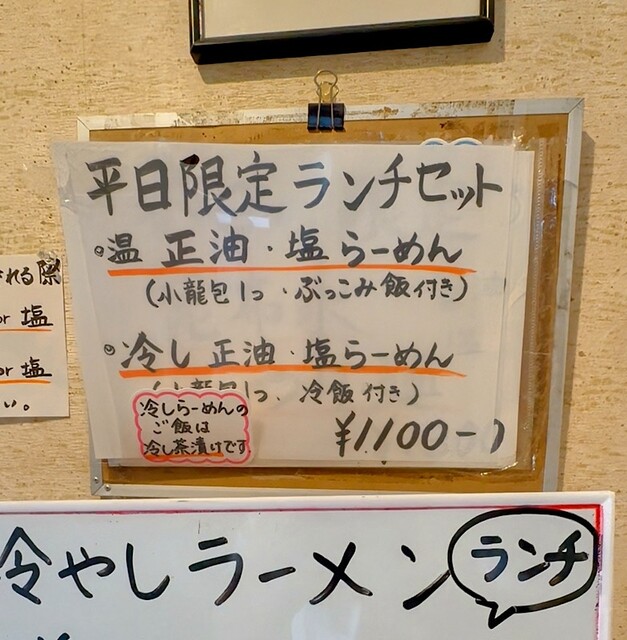 平日限定ランチセット
◎温 正油・塩らーめん
(小龍包1つ・ぶっこみ飯付き)
◎冷し 正油・塩らーめん
(小龍包1つ、冷飯付き)
冷しらーめんの
ご飯は
冷し茶漬けです
¥1,100-
れる際
or 塩
or 塩
い。
冷やしラーメン ランチ